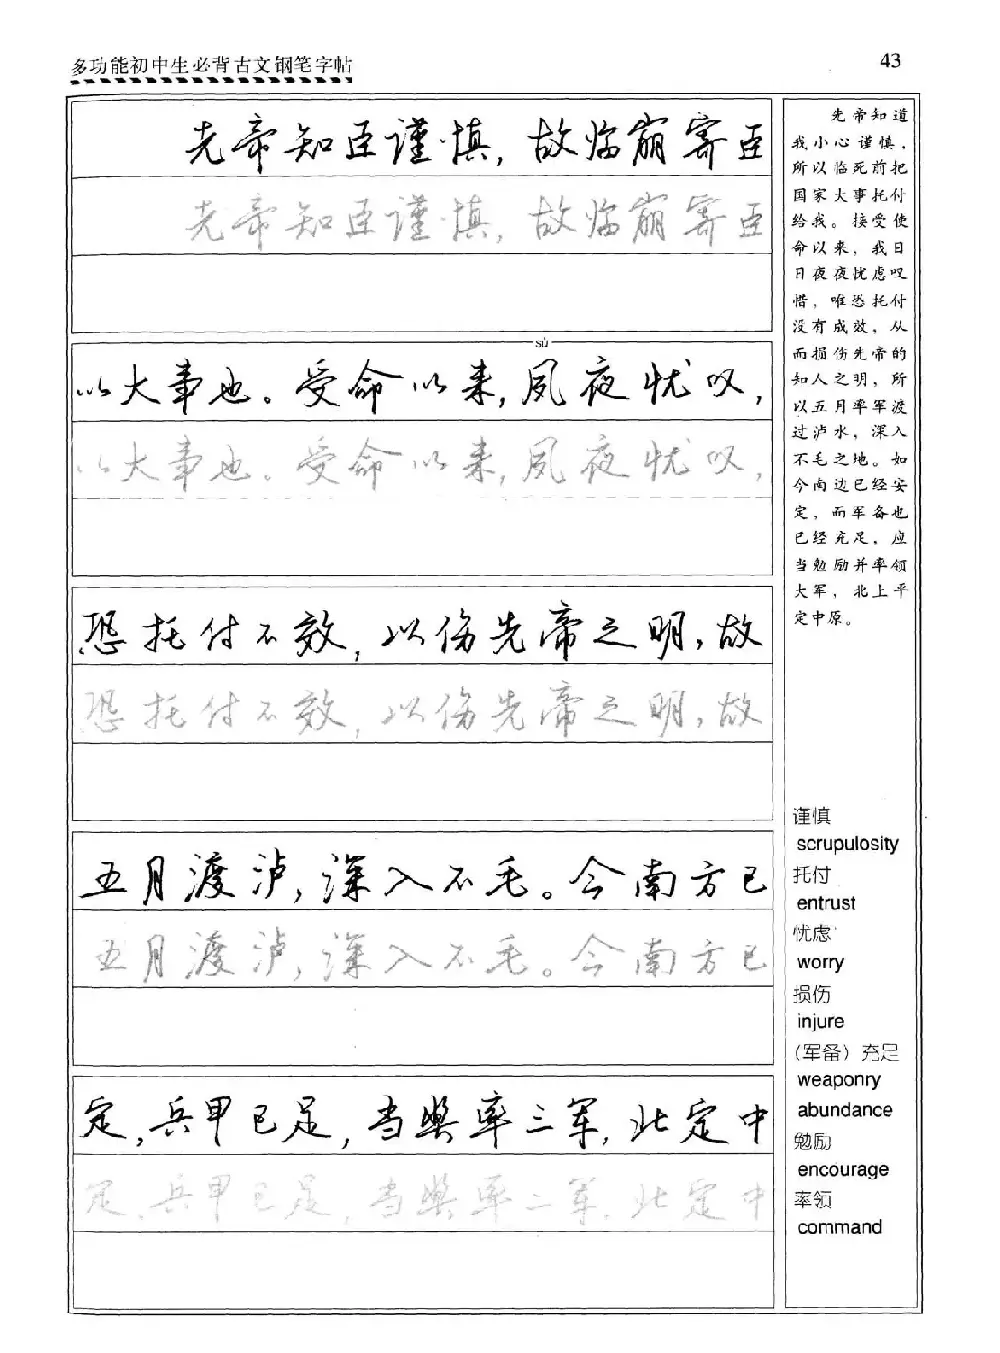 多功能初中生必背古文钢笔字帖
43
先帝知臣谨慎,故临崩寄臣
先帝知臣谨慎,故临崩寄臣
sù
以大事也。受命以来,夙夜忧叹,
以大事也。受命以来,夙夜忧叹,
恐托付不效,以伤先帝之明,故
恐托付不效,以伤先帝之明,故
五月渡泸,深入不毛。今南方已
五月渡泸,深入不毛。今南方已
定,兵甲已足,当奖率三军,北定中
定,兵甲已足,当奖率三军,北定中
先帝知道
我小心谨慎,
所以临死前把
国家大事托付
给我。接受使
命以来,我日
日夜夜忧虑叹
惜,唯恐托付
没有成效,从
而损伤先帝的
知人之明,所
以五月率军渡
过泸水,深入
不毛之地。如
今南边已经安
定,而军备也
已经充足,应
当勉励并率领
大军,北上平
定中原。
谨慎
scrupulosity
托付
entrust
忧虑
worry
损伤
injure
(军备)充足
weaponry
abundance
勉励
encourage
率领
command